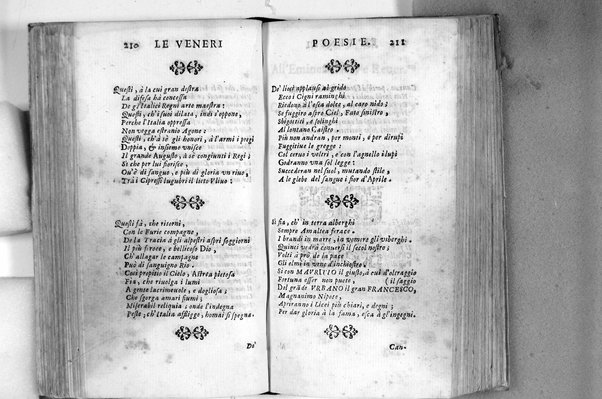 210 LE VENERI
Questi, à la cui gran destra
La difesa hà concessa
De gl'Italici Regni arte maestra:
Questi, ch'i suoi dilata, indi s'oppone,
Perche l'Italia oppressa
Non vegga estranio Agone:
Questi, ch'à sè gli honori, à l'armi i pregi
Doppia, & insieme vnisce
Il grande Augusto, à sè congiunti i Regi;
Sì che per lui fiorisce,
Ou'è di sangue, e più di gloria vn riuo,
Trà i Cipressi lugubri il lieto Vliuo:
Questi fà, che ritorni,
Con le Furie compagne,
De la Tracia à gli alpestri aspri soggiorni
Il più feroce, e bellicoso Dio,
Ch' allagar le campagne
Può di sanguigno Rio.
Così propitio il Cielo, Astrea pietosa
Fia, che riuolga i lumi
A gente lacrimeuole, e dogliosa;
Che sgorga amari fiumi;
Miserabil reliquia: onde l'indegna
Peste, ch'Italia affligge, homai si spegna.
Dè
POESIE. 211
De' lieti applausi al grido
Ecco i Cigni raminghi
Riedono à l'esca dolce, al caro nido;
Se fuggiro aspro Ciel, Fato sinistro,
Sbigottiti, e solinghi
Al lontano Caistro.
Più non andran, per monti, e per dirupi
Fuggitiue le gregge:
Col ceruo i veltri, e con l'agnello i lupi
Godranno vna sol legge:
Succederan nel suol, mutando stile,
A le glebe del sangue i fior d'Aprile.
Sì fia, ch' in terra alberghi
Sempre Amaltea ferace.
I brandi in marre, in vomere gli vsberghi.
Quinci vedrà conuersi il secol nostro;
Volti à prò de la pace
Gli elmi in vene d'inchiostro.
Si con MAVRITIO il giusto, à cui d'oltraggio
Fortuna esser non puote, (il saggio
Del grãde VRBANO il gran FRANCESCO,
Magnanimo Nipote,
Apriranno i Licei più chiari, e degni;
Per dar gloria à la fama, esca à gl'ingegni.
Can-